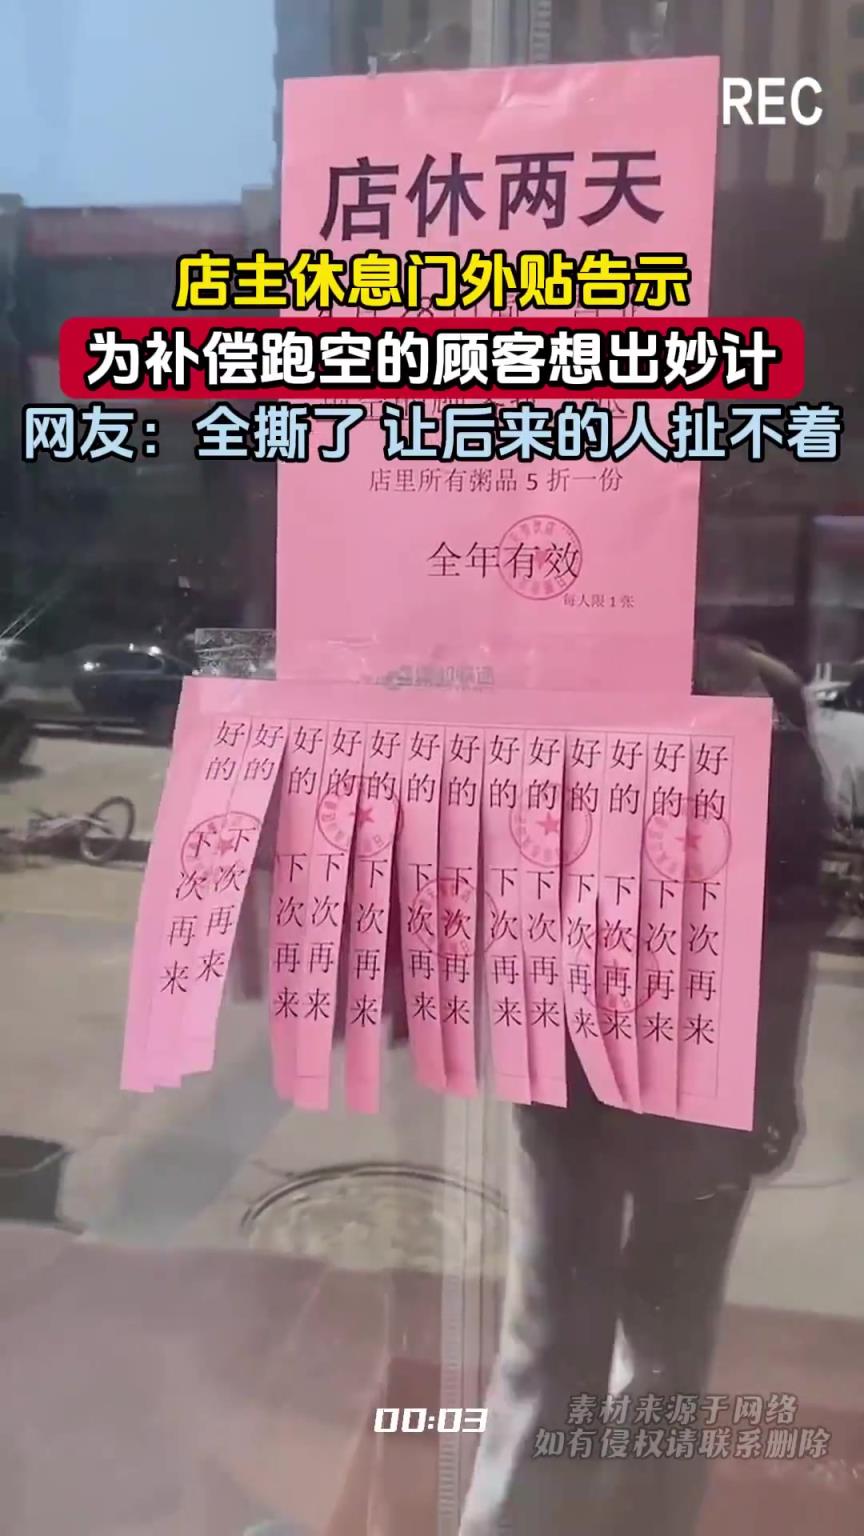 REC
店休两天
店主休息门外贴告示
为补偿跑空的顾客想出妙计
网友：全撕了 让后来的人扯不着
店里所有粥品 5 折一份
全年有效
每人限 1 张
好的 下次再来
好的 下次再来
好的 下次再来
好的 下次再来
好的 下次再来
好的 下次再来
好的 下次再来
好的 下次再来
好的 下次再来
好的 下次再来
好的 下次再来
好的 下次再来
好的 下次再来
00:03
素材来源于网络
如有侵权请联系删除